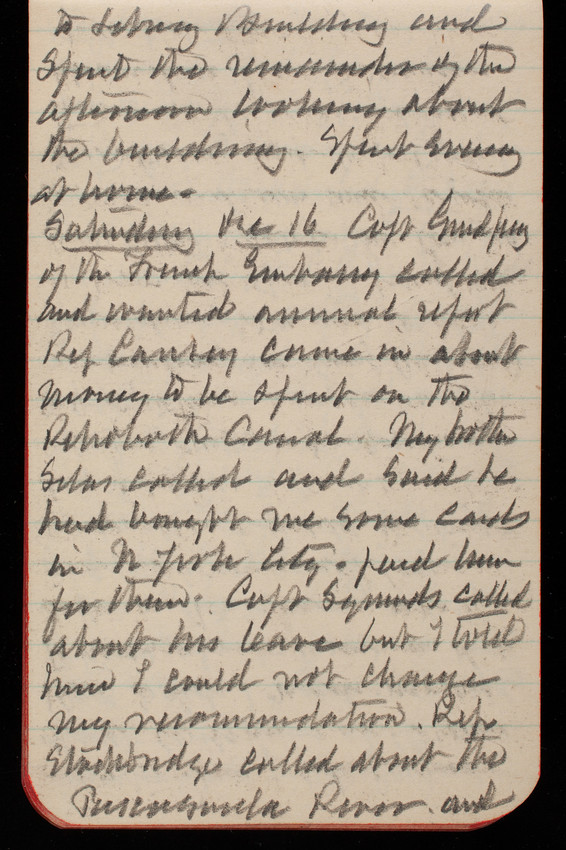 to Library Building and
Spent the remainder of the
afternoon looking about
the building. Spent Evening
at home.
Saturday Dec 16 Capt
of the French Embassy called
and wanted annual report
Rep Causey came in about
money to be spent on the
Rehoboth Canal. My brother
Silas called and said he
had bought me some cards
in N York City. paid him
for them. Capt Symonds called
about his leave but I told
him I could not change
my recommendation. Rep
Stockbridge called about the
River and